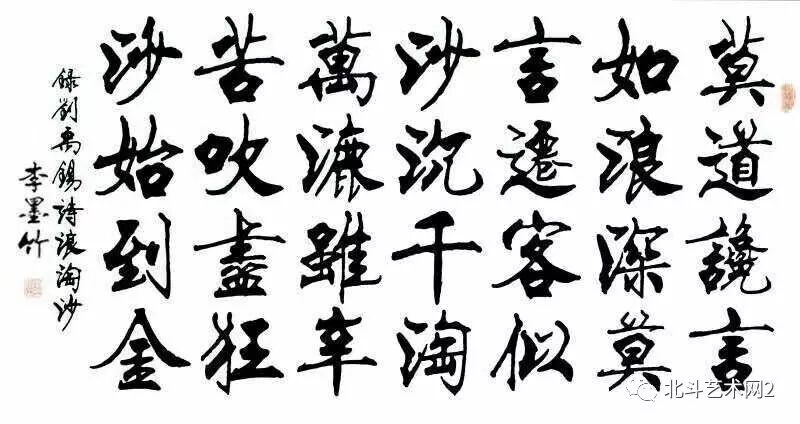 莫道讒言
如浪深莫
言遷客似
沙沉千淘
萬漉雖辛
苦吹盡狂
沙始到金
録劉禹錫詩浪淘沙
李墨竹
北斗艺术网2